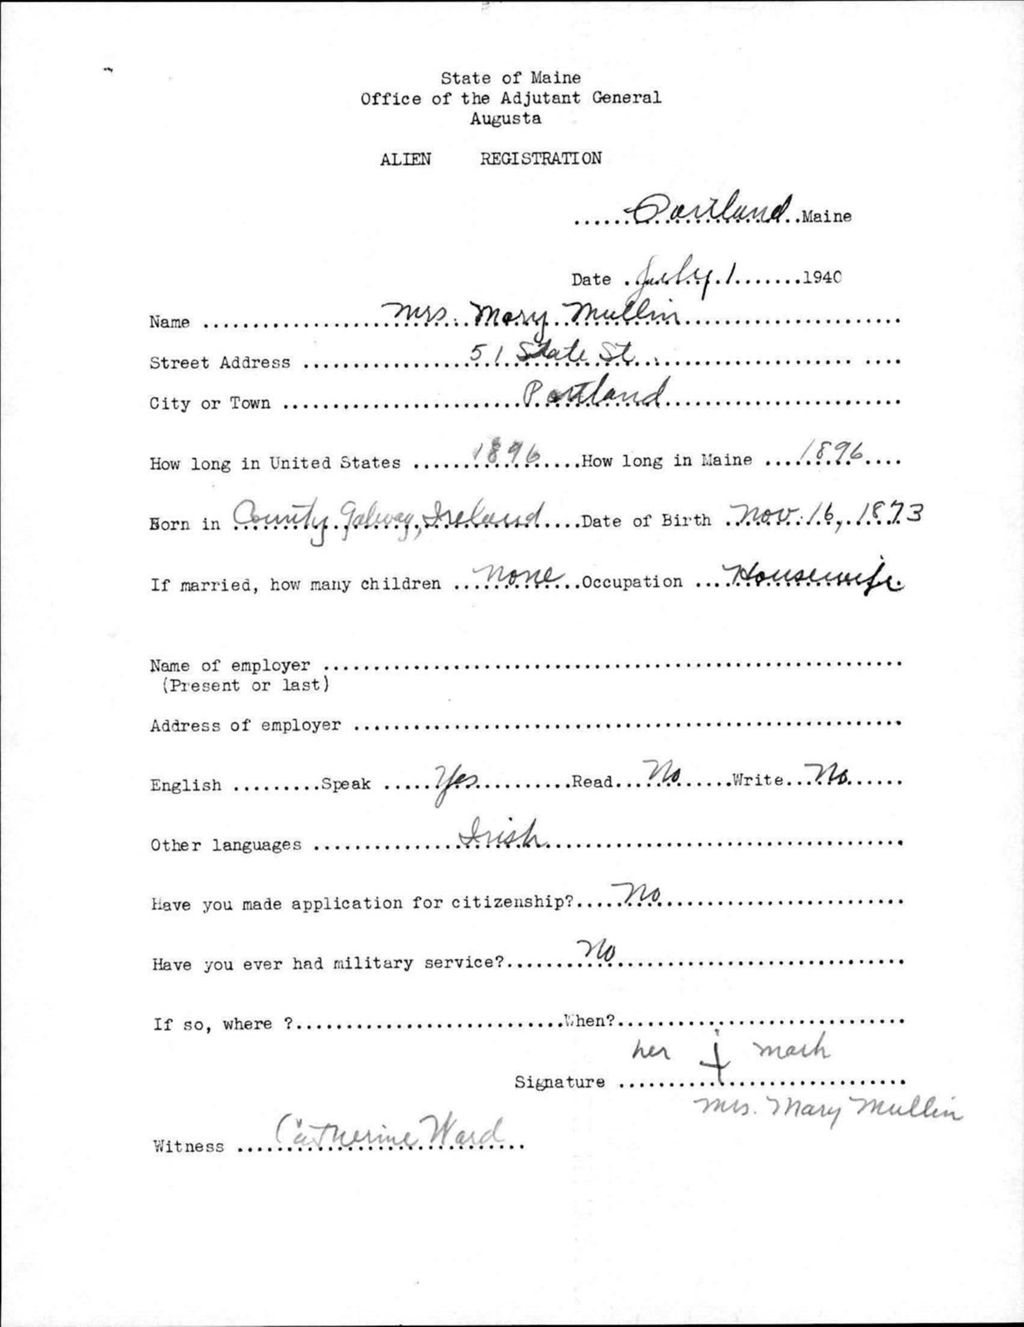 State of Maine
Office of the Adjutant General
Augusta
ALIEN REGISTRATION
......Portland..Maine
Date .July.1.......1940
Name ..................Mrs. Mary Mullin......................
Street Address .................51 State St...................... ....
City or Town ........................Portland........................
How long in United States ......1896.....How long in Maine ....1896....
Born in County Galway, Ireland....Date of Birth .Nov. 16, 1873
If married, how many children ...None...Occupation ....Housewife.
Name of employer ..........................................................
(Present or last)
Address of employer .......................................................
English .........Speak .....Yes............Read....No......Write...No......
Other languages ...............Irish....................................
Have you made application for citizenship?.....No.........................
Have you ever had military service?........No.............................
If so, where ?...........................When?.............................
her † mark
Signature .............................
Mrs. Mary Mullin
Witness ....Catherine Ward..